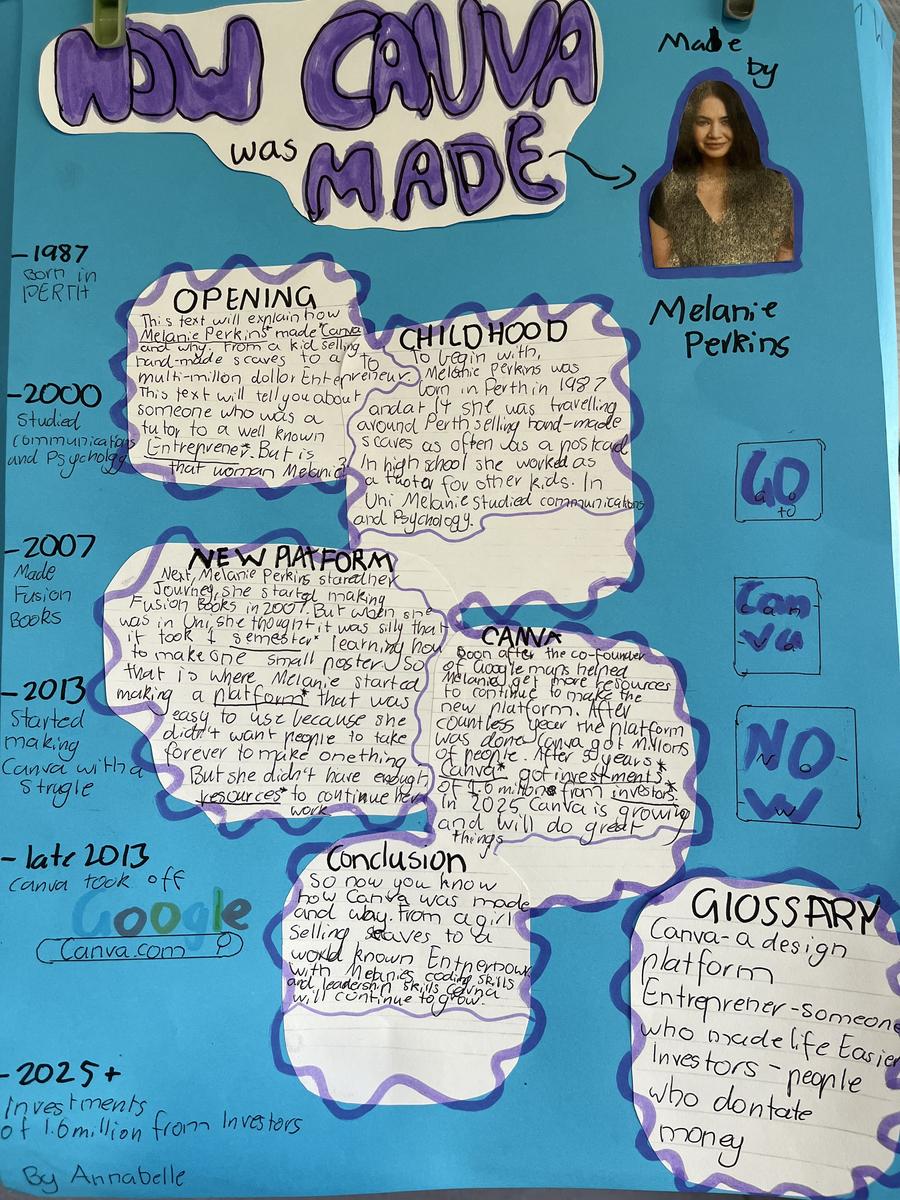 HOW CANVA
was MADE
Made
by
Melanie
Perkins
-1987
Born in
PERTH
-2000
Studied
communications
and Psycholgy
-2007
Made
Fusion
Books
-2013
Started
making
Canva with a
Strugle
- late 2013
Canva took off
Google
Canva.com
-2025+
Investments
of 1.6 million from Investors
By Annabelle
OPENING
This text will explain how
Melanie Perkins* made Canva
and why. From a kid selling
hand-made scaves to a to
multi-millon dollor Entepreneur.
This text will tell you about
someone who was a
tutor to a well known
Entreprener*. But is
that woman Melanie?
CHILDHOOD
To begin with,
Melonie perkins was
born in Perth in 1987
and at 14 she was travelling
around Perth selling hand-made
scaves as often as a postcard
In high school she worked as
a tutor for other kids. In
Uni Melanie studied communications
and Psychology.
NEW PLATFORM
Next, Melanie Perkins stared her
Journey, she started making
Fusion Books in 2007. But when she
was in Uni, she thought it was silly that
it took 1 semester* learning how
to make one small poster, so
that is where Melanie started
making a platform* that was
easy to use because she
didn't want people to take
forever to make one thing
But she didn't have enough
resources* to continue her
work
CANVA
Soon after the co-founder
of Google maps helped
Melanie get more resources
to continue to make the
new platform. After
countless year the platform
was done. Canva got millons
of people. After years
Canva* got investments*
of 1.6 millions from investors*
In 2025 Canva is growing
and will do great
things
Conclusion
So now you know
how Canva was made
and way. From a girl
selling scaves to a
world known Entpernour
with Melanies coding skills
and leadership skills canva
will continue to grow.
GO
to
Can
va
NO
W
GLOSSARY
Canva-a design
platform
Entreprener-someone
who made life Easier
Investors - people
who dontate
money